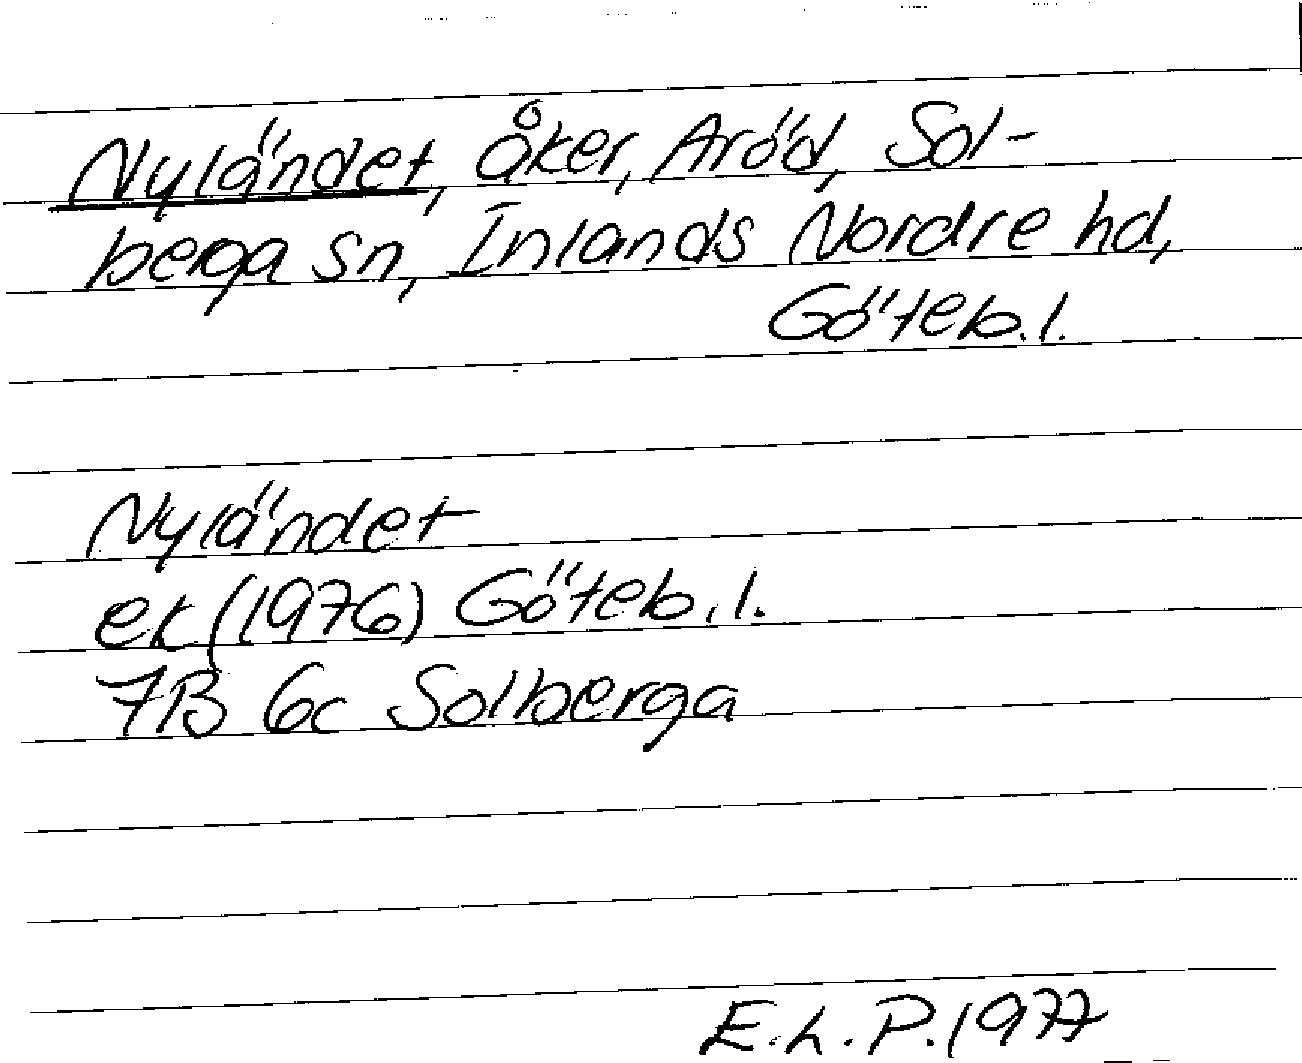 Nyländet, åker, Aröd, Sol-
berga sn, Inlands Nordre hd,
Göteb. l.
Nyländet
ek (1976) Göteb. l.
7B 6c Solberga
E. L. P. 1977